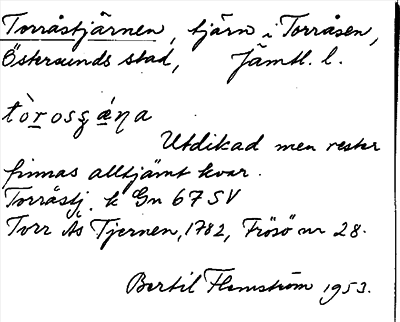 Torråstjärnen, tjärn i Torråsen,
Östersunds stad, Jämtl. l.
Utdikad men rester
finnas alltjämt kvar.
Torråstj. k Gn 67 SV
Torr Ås Tjernen, 1782, Frösö nr 28.
Bertil Flemström 1953.